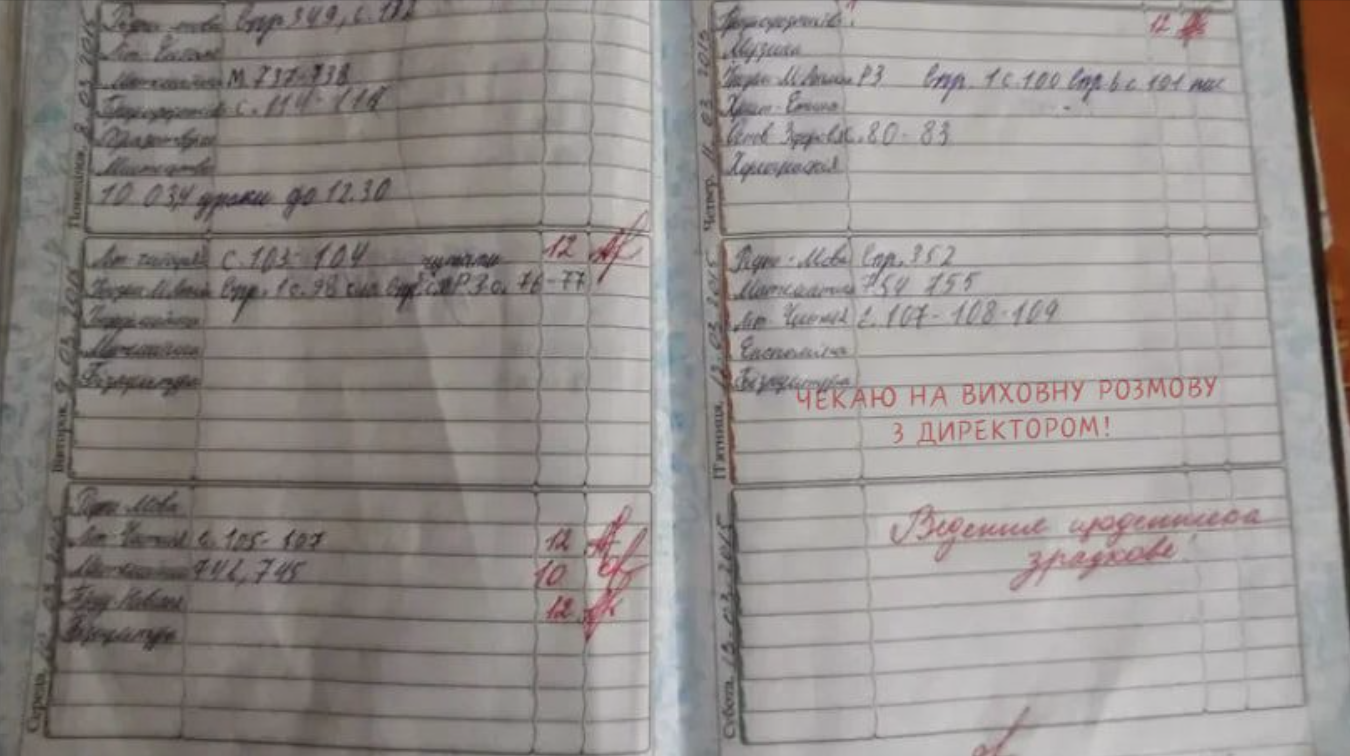 Понеділок, 03 2015
Впр. 349, с. 132
Літ. Читання
Математика М. 737-738
Природознавство с. 114-117
Образотворче
Мистецтво
10 03, 4 уроки до 12.30
Вівторок, 9. 03. 2015
Літ. читання с. 103-104 читати 12
Впр. 1 с. 98 Впр. РЗ с. 76-77
Інформатика
Математика
Фізкультура
Середа, 03
Рідн. Мова
Літ. Читання с. 105-107 12
Математика 742, 745 10
Труд. Навчан. 12
Фізкультура
Четвер, 03 2015
Природознавство 12
Музика
РЗ Впр. 1 с. 100 Впр. 6 с. 101
Христ. Етика
Основ. Здоров'я с. 80-83
Хореографія
П'ятниця, 12. 03. 2015
Рідн. Мова Впр. 352
Математика 754 755
Літ. Читання с. 107-108-109
Фізкультура
ЧЕКАЮ НА ВИХОВНУ РОЗМОВУ
З ДИРЕКТОРОМ!
Субота, 13. 03. 2015
Ведення щоденника
зразкове!